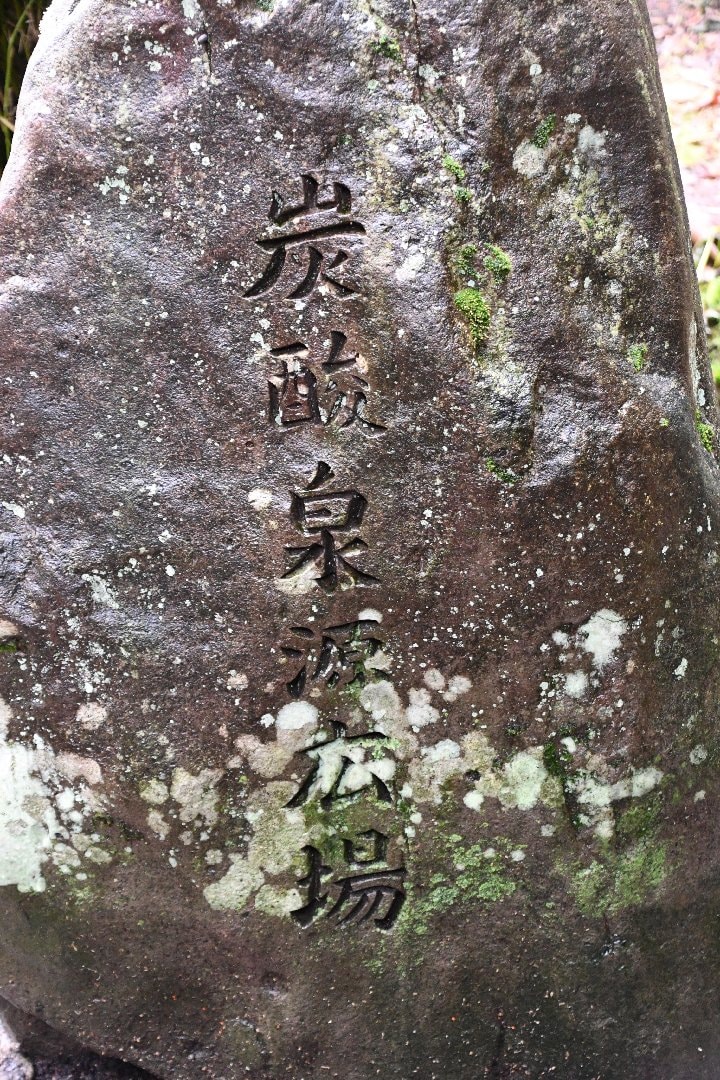 炭酸泉源広場